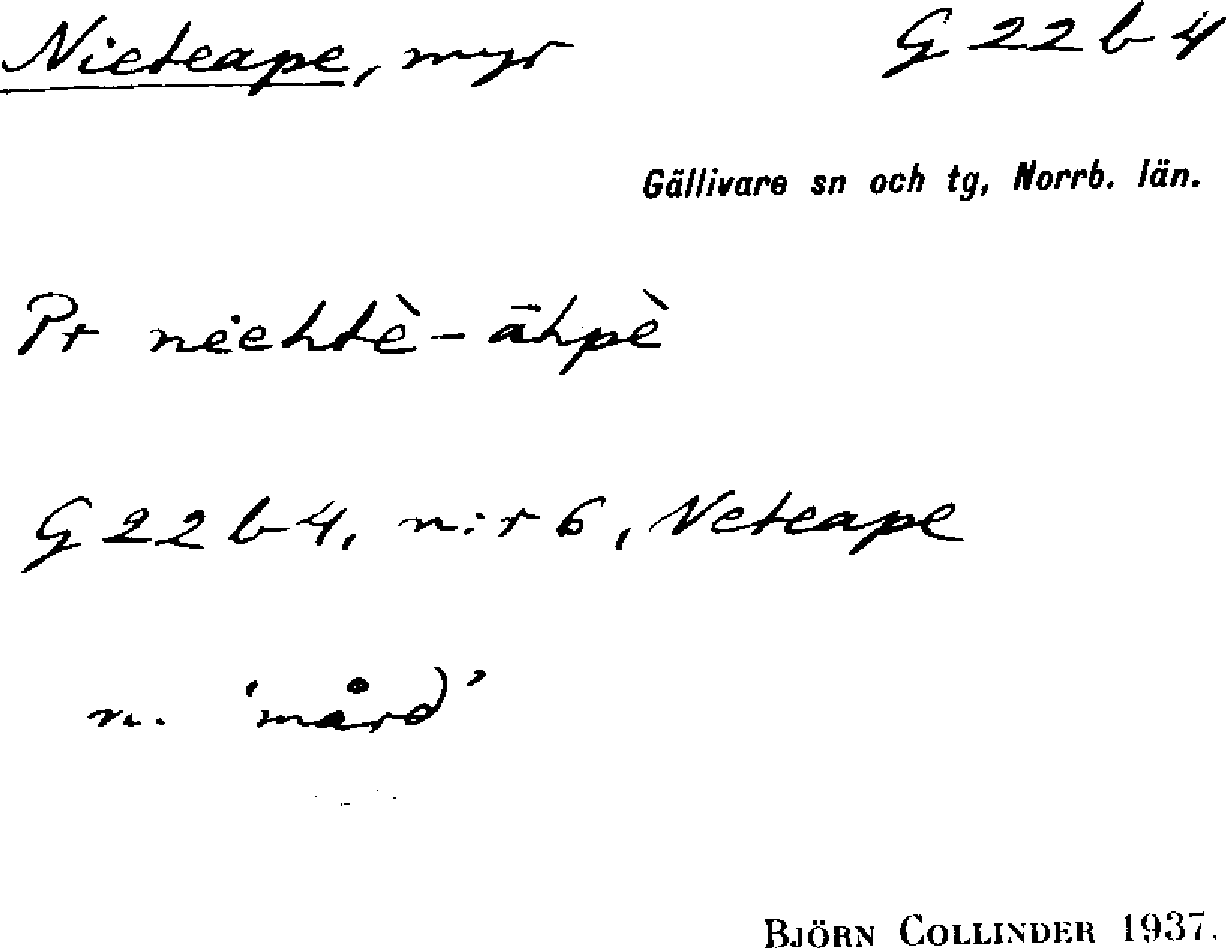 Nieteape, myr G 22 b 4
Gällivare sn och tg, Norrb. län.
Pr nėehtè-āhpè
G 22 b 4, n:r 6, Neteape
n. 'mård'
BJÖRN COLLINDER 1937.